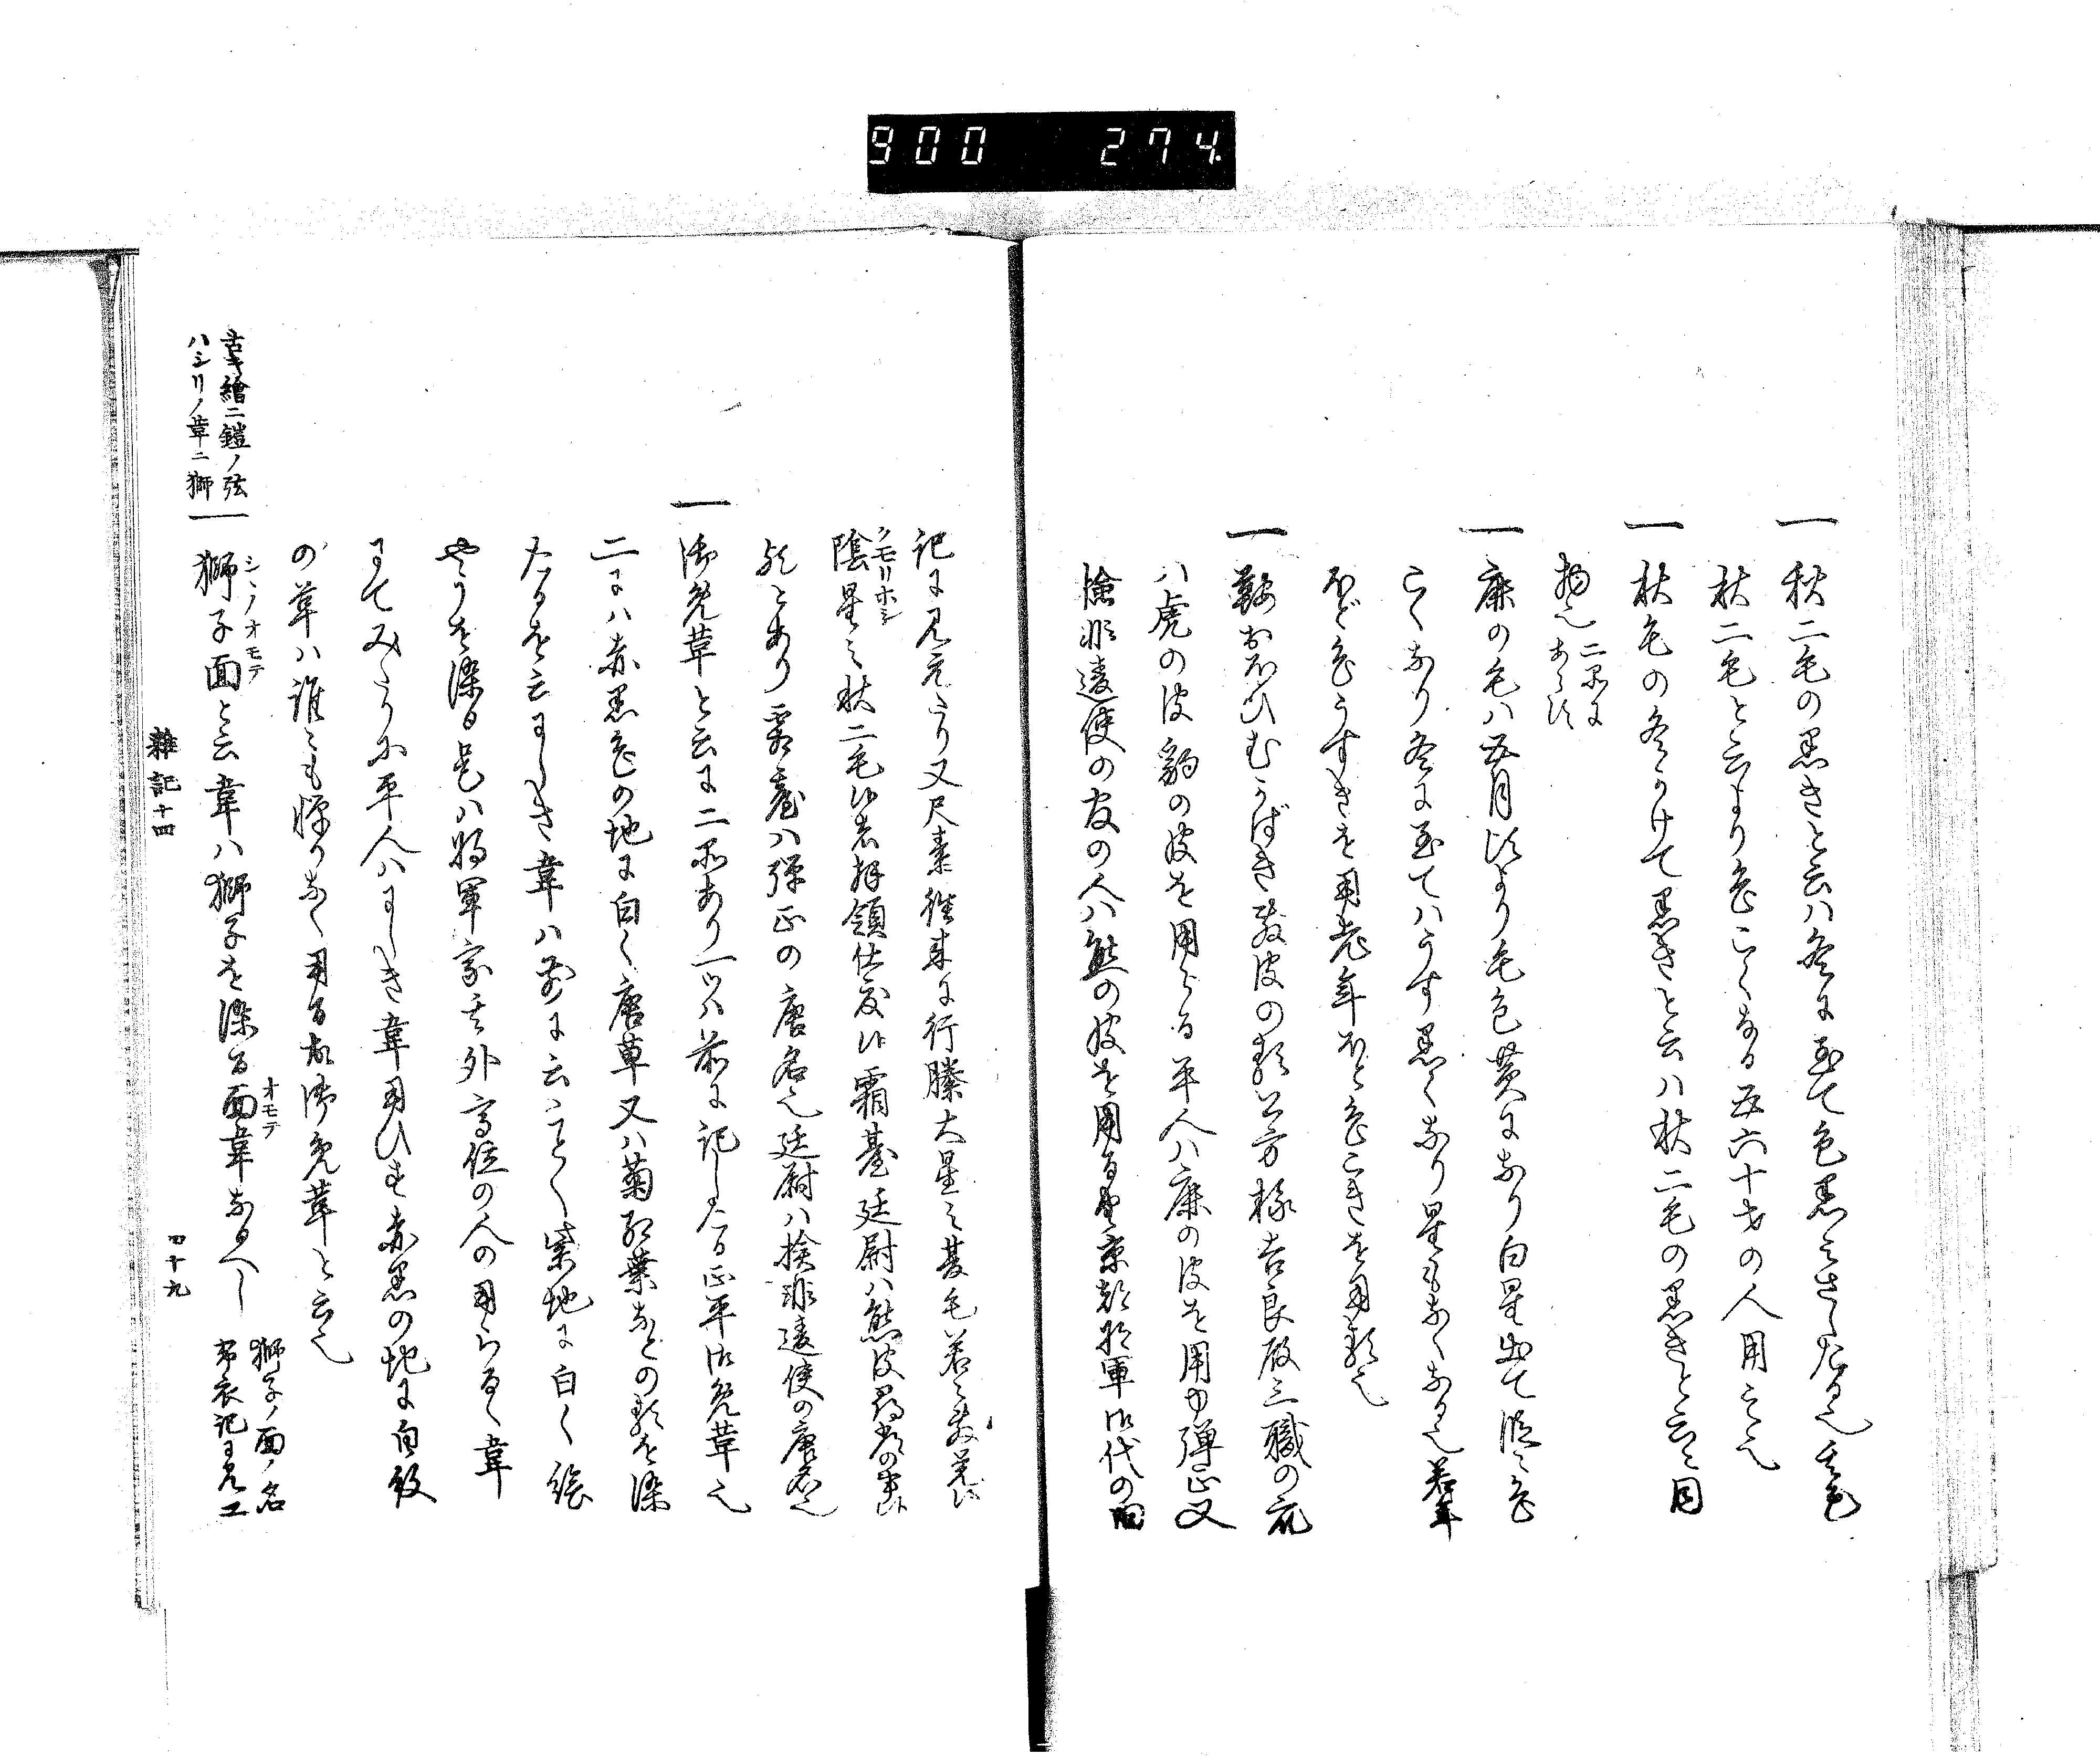 900 274
一 秋二毛の黒きと云ハ冬に至て色黒ミさしたる也夏毛
秋二毛と云より色こくなる五六十才の人用之也
一 秋毛の冬かけて黒きと云ハ秋二毛の黒きと云と同
物也二品にあらす
一 鹿の毛ハ五月頃より毛色黄になり白星出て段々色
こくなり冬に至てハうす黒くなり星もなくなる也若年
ほど色うすきを用老年ほと色こきを用る也
一 鞍おほひむかばき敷皮の類公方様吉良殿三職の衆
ハ虎の皮豹の皮を用らる平人ハ鹿の皮を用ゆ弾正又
検非違使の官の人ハ熊の皮を用る也京都将軍御代の旧
記に見えたり又尺素往来に行縢大星之夏毛若之敷革ハ
陰星之秋二毛候者拝領仕度候霜臺廷尉ハ熊皮尋常の事候
クモリホシ
歟とあり霜臺ハ弾正の唐名也廷尉ハ検非違使の唐名也
一 御免革と云に二品あり一ツハ前に記したる正平御免革也
二にハ赤黒色の地に白く唐草又ハ菊紅葉などの類を染
たるを云にしき韋ハ前に云ことく紫地に白く絵
やうを染る是ハ将軍家其外高位の人の用らるゝ韋
にてみたりに平人ハにしき韋用ひす赤黒の地に白紋
の革ハ誰にも憚りなく用る故御免革と云也
古キ繪ニ鎧ノ弦
ハシリノ韋ニ獅
一 獅子面と云韋ハ獅子を染る面韋なるへし
シヽノオモテ
オモテ
獅子ノ面ノ名
布衣記ニ見エ
雜記十四
四十九